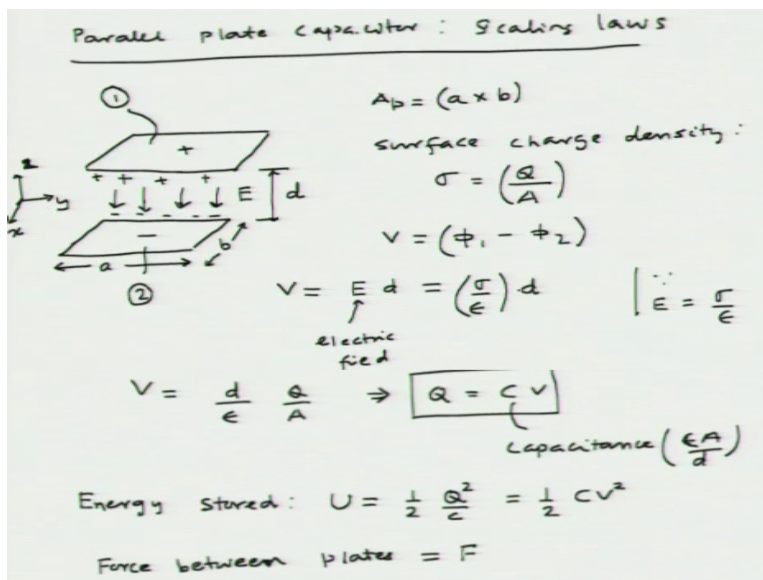 Parallel plate capacitor : Scaling laws
①
A_p = (a × b)
surface charge density :
+
+ + + +
z
y
x
E
d
σ = (Q/A)
- - - - -
−
b
a
V = (ϕ₁ - ϕ₂)
②
V = E d = (σ/ϵ) · d
∵ E = σ/ϵ
electric
field
V = d/ϵ Q/A ⇒ Q = C V
capacitance (ϵA/d)
Energy stored : U = 1/2 Q²/C = 1/2 CV²
Force between plates = F